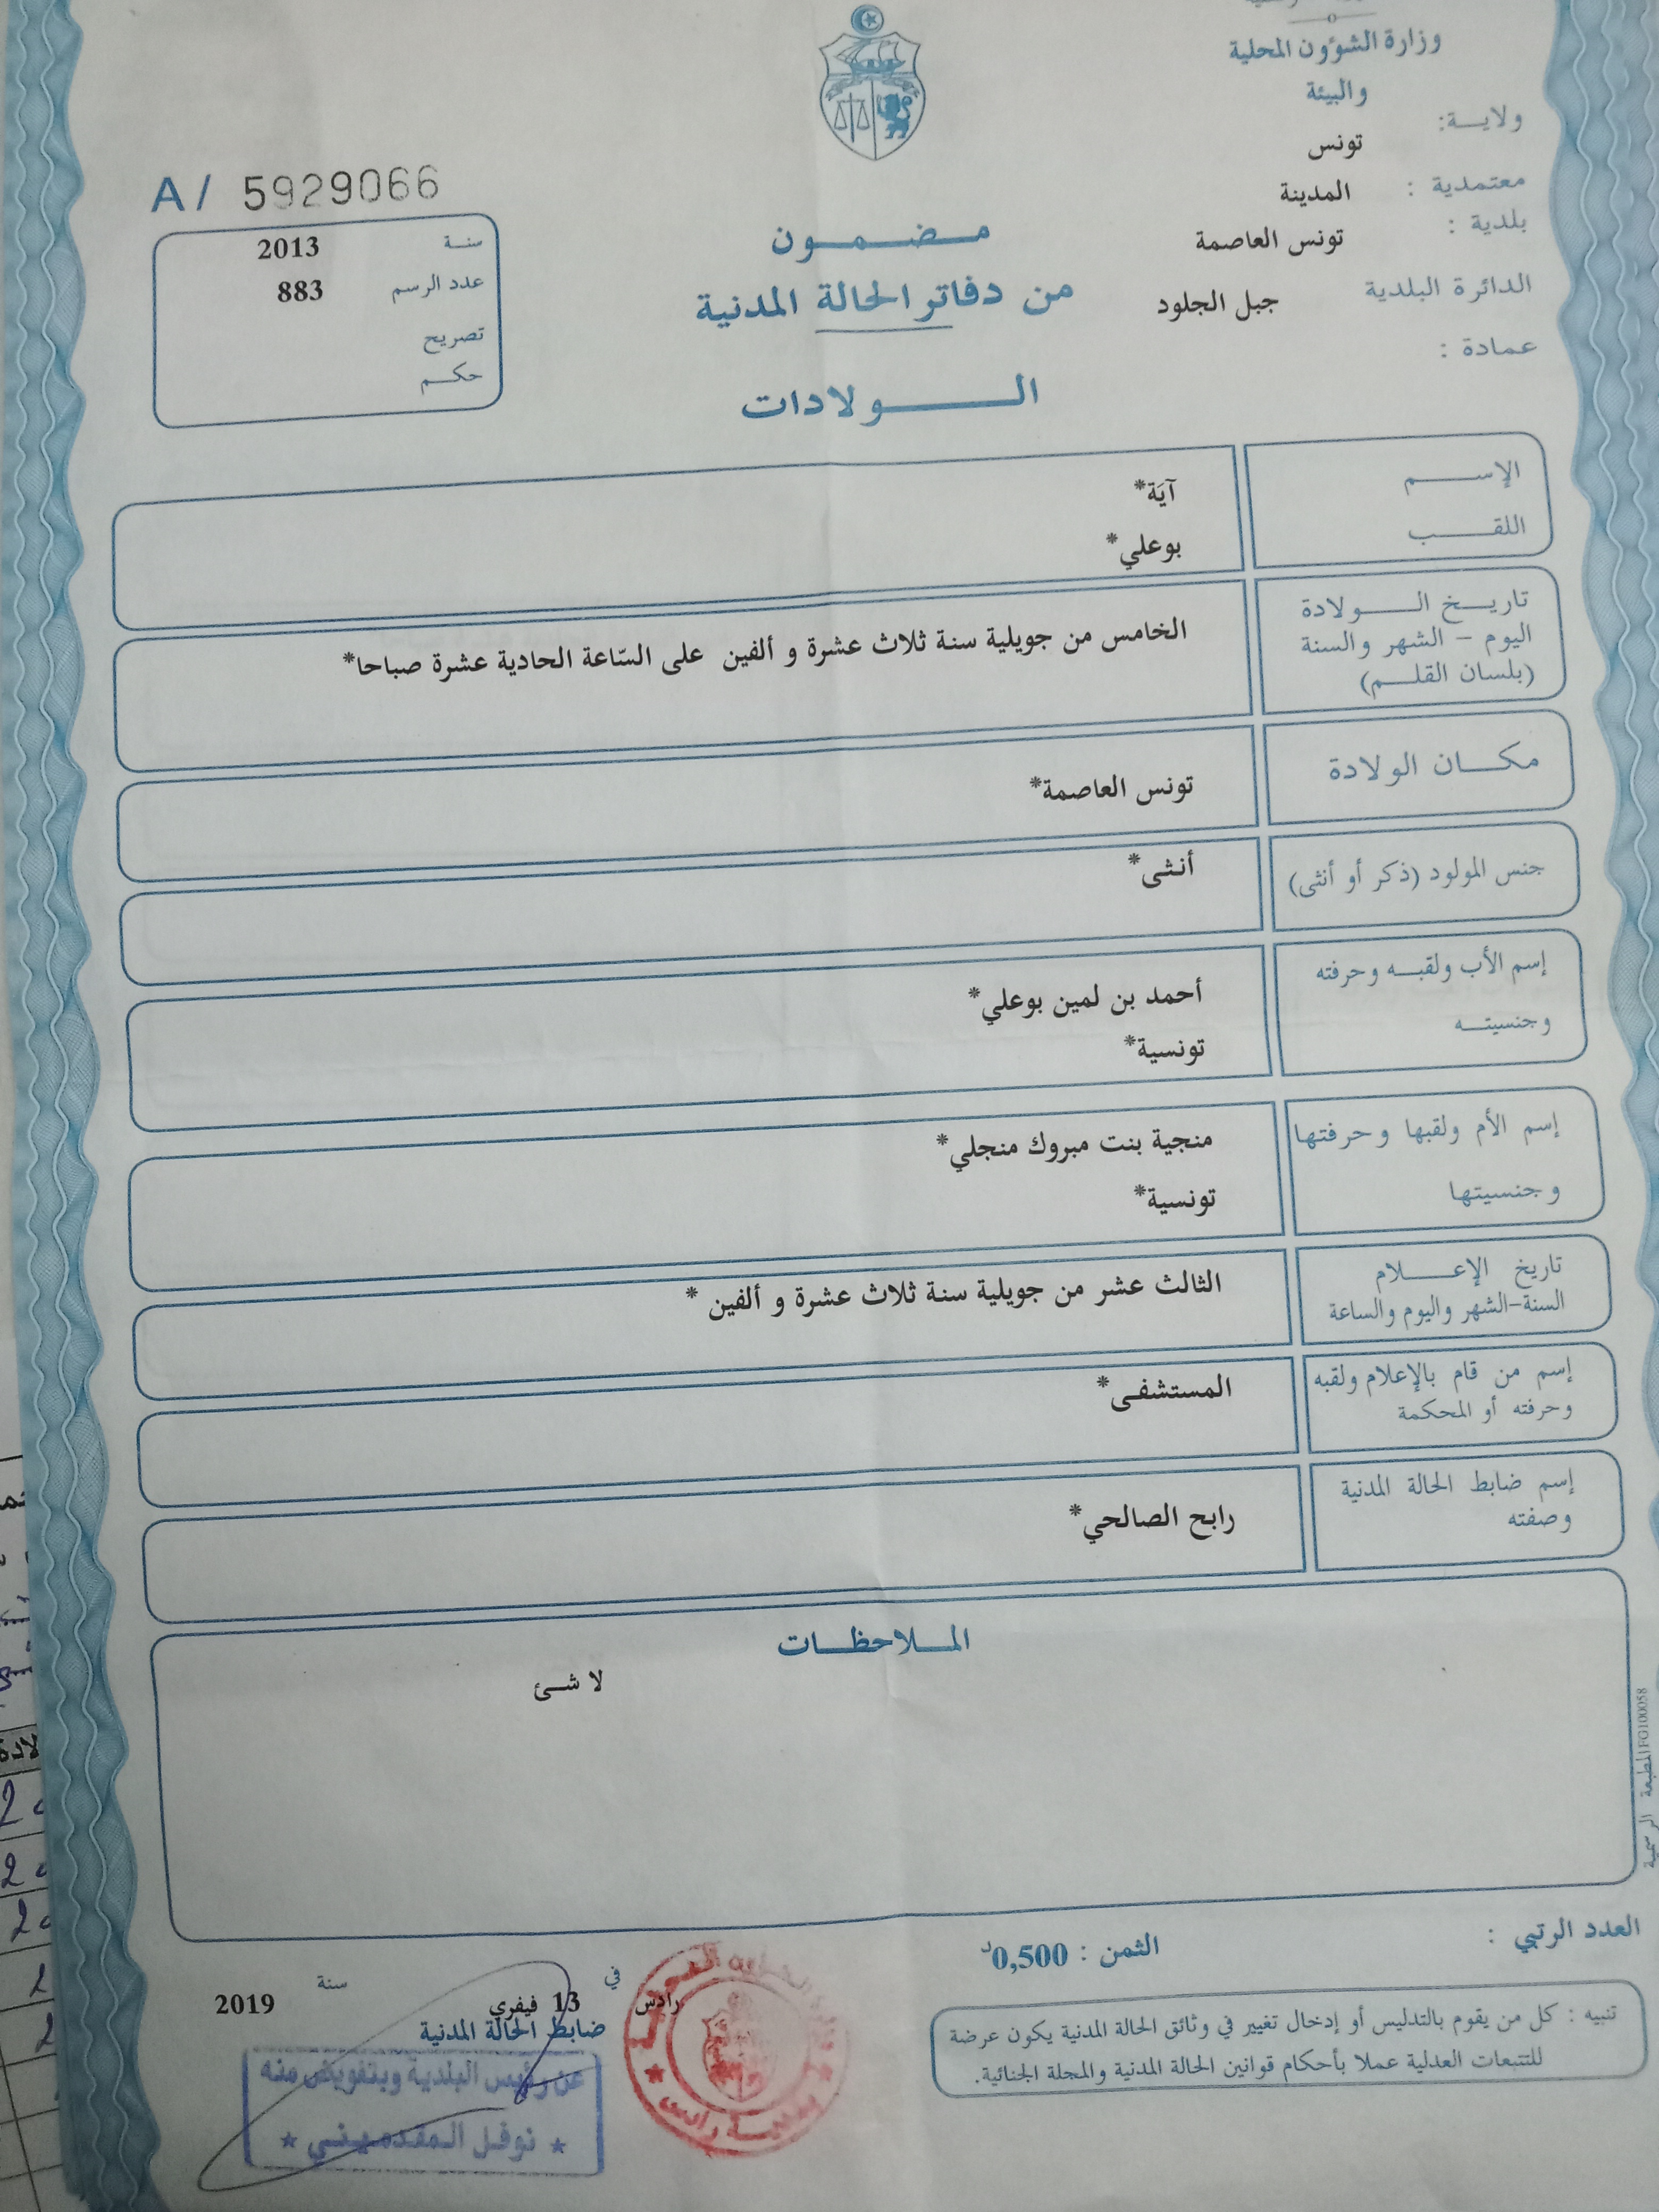 وزارة الشؤون المحلية
والبيئة
ولايـــة:
تونس
معتمدية :
المدينة
بلدية :
تونس العاصمة
الدائرة البلدية
جبل الجلود
عمادة :
A/ 5929066
سنـة 2013
عدد الرسم 883
تصريح
حكــم
مــضــمــون
من دفاتر الحالة المدنية
الــــولادات
الإســــم
آيَة*
اللقــــب
بوعلي*
تاريــخ الــــولادة
اليوم - الشهر والسنة
(بلسان القلــم)
الخامس من جويلية سنة ثلاث عشرة و ألفين على السّاعة الحادية عشرة صباحا*
مكـــان الولادة
تونس العاصمة*
جنس المولود (ذكر أو أنثى)
أنثى*
إسم الأب ولقبــه وحرفته
أحمد بن لمين بوعلي*
وجنسيتــه
تونسية*
إسم الأم ولقبها وحرفتها
منجية بنت مبروك منجلي*
وجنسيتها
تونسية*
تاريخ الإعــــلام
السنة-الشهر واليوم والساعة
الثالث عشر من جويلية سنة ثلاث عشرة و ألفين *
إسم من قام بالإعلام ولقبه
وحرفته أو المحكمة
المستشفى*
إسم ضابط الحالة المدنية
وصفته
رابح الصالحي*
الملاحظــات
لا شــئ
المطبعة الرسمية FG100058
العدد الرتبي :
الثمن : 0,500د
تنبيه : كل من يقوم بالتدليس أو إدخال تغيير في وثائق الحالة المدنية يكون عرضة
للتتبعات العدلية عملا بأحكام قوانين الحالة المدنية والمجلة الجنائية.
رادس في 13 فيفري سنة 2019
ضابط الحالة المدنية
عن رئيس البلدية وبتفويض منه
★ نوفل المقدميني ★
بلديــة رادس